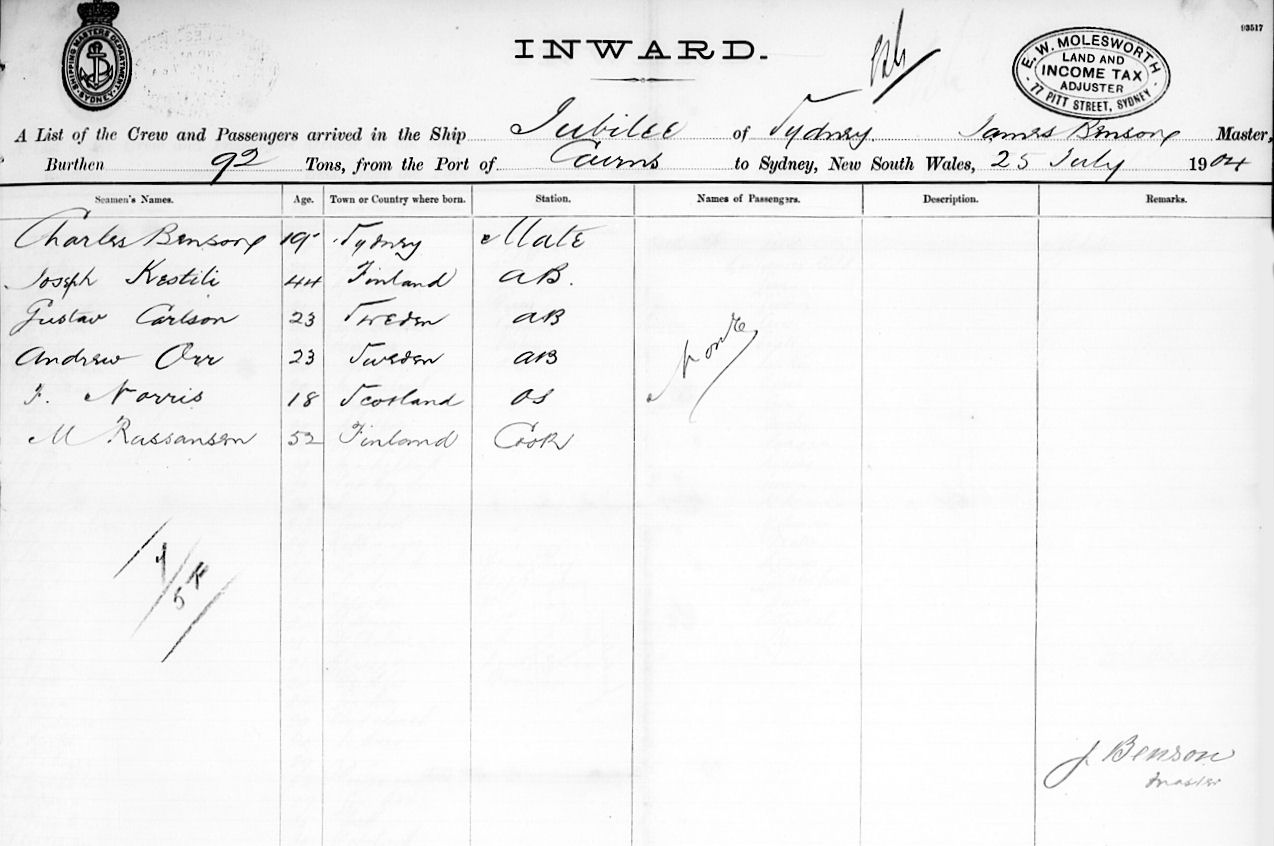 SHIPPING MASTERS DEPARTMENT SYDNEY
93517
INWARD.
E. W. MOLESWORTH
LAND AND
INCOME TAX
ADJUSTER
77 PITT STREET, SYDNEY
A List of the Crew and Passengers arrived in the Ship Jubilee of Sydney James Benson Master,
Burthen 92 Tons, from the Port of Cairns to Sydney, New South Wales, 25 July 1904
Seamen's Names. Age. Town or Country where born. Station. Names of Passengers. Description. Remarks.
Charles Benson 19 Sydney Mate
Joseph Kestili 44 Finland AB.
Gustav Carlson 23 Sweden AB
Andrew Orr 23 Sweden AB
None
F. Norris 18 Scotland OS
M Rassansen 52 Finland Cook
J Benson
Master